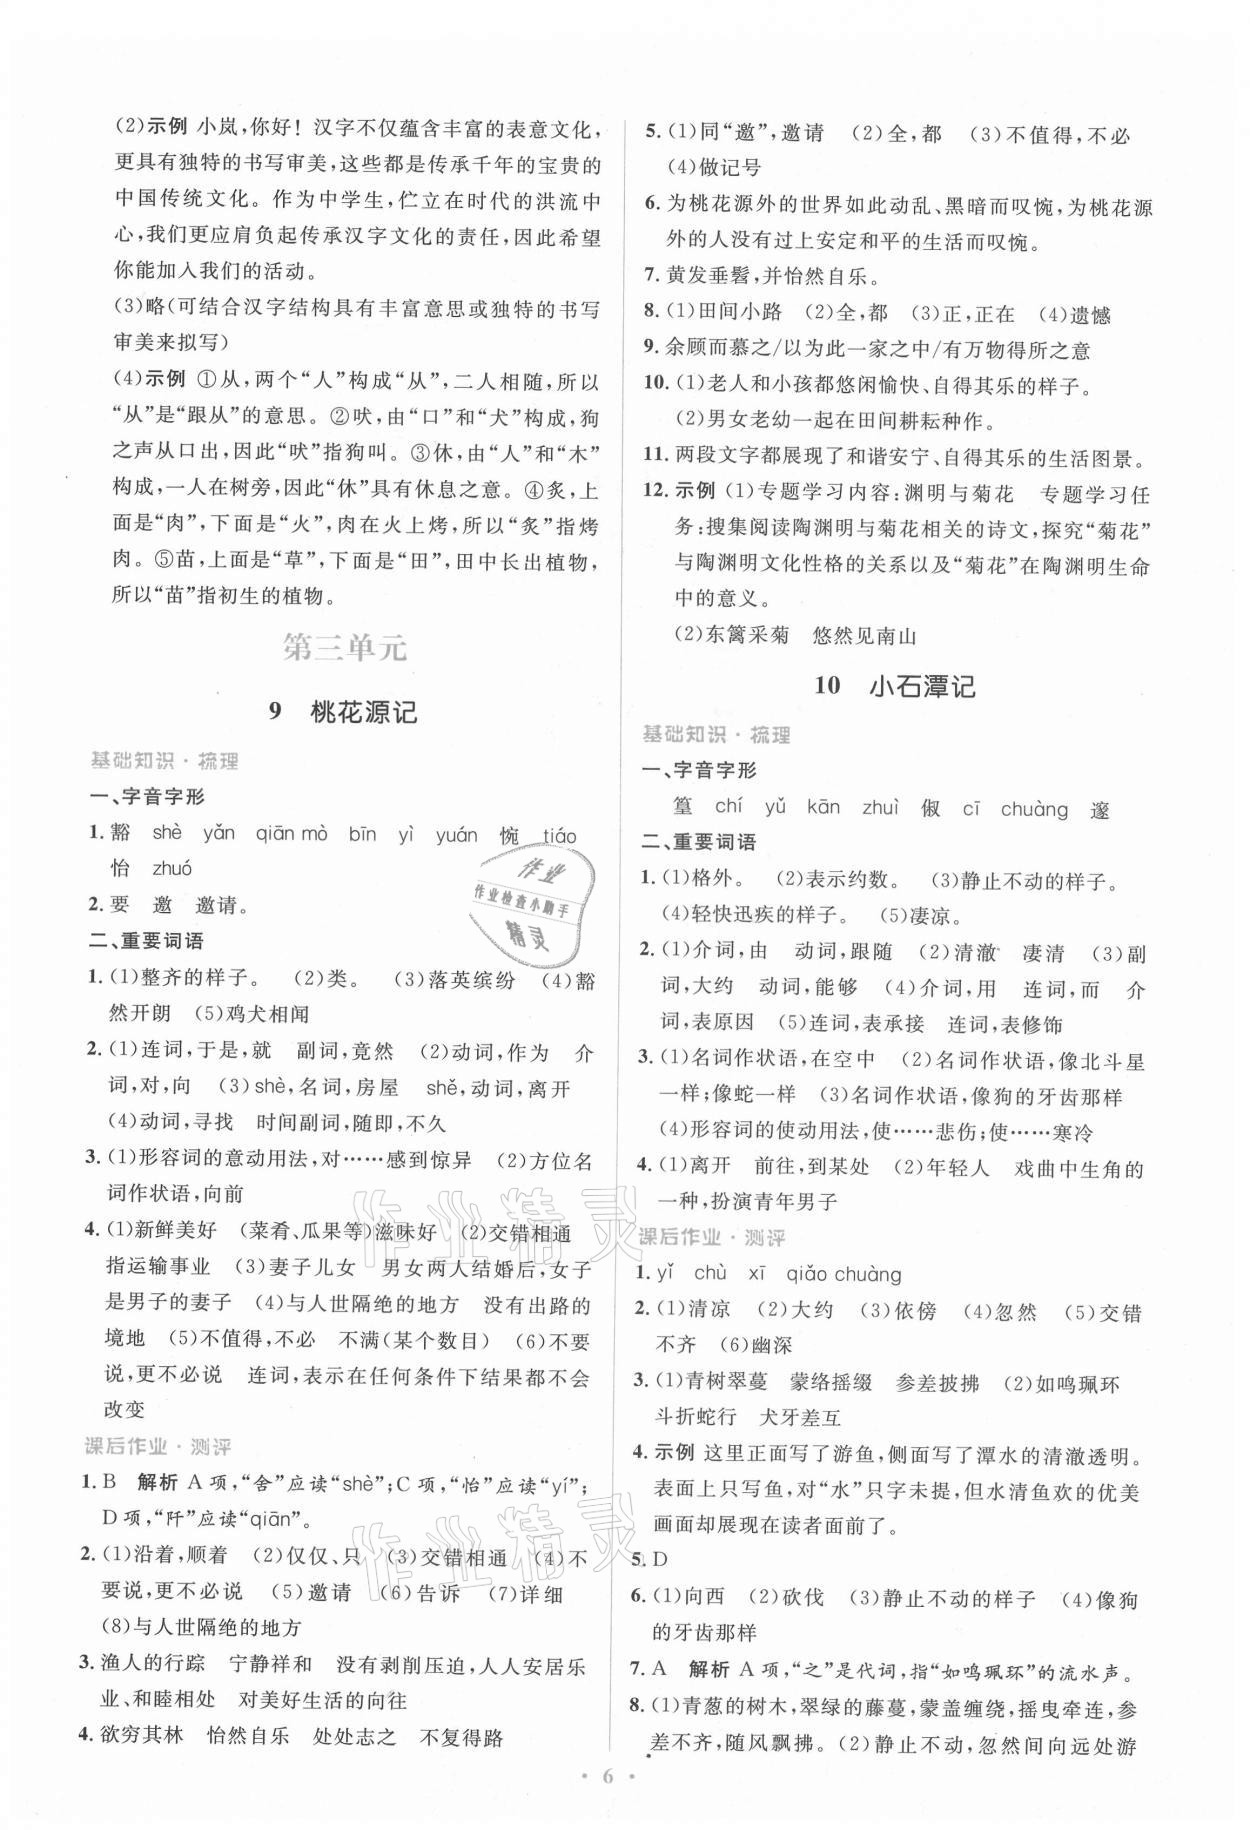 (2)示例 小岚,你好! 汉字不仅蕴含丰富的表意文化,
更具有独特的书写审美,这些都是传承千年的宝贵的
中国传统文化。作为中学生,伫立在时代的洪流中
心,我们更应肩负起传承汉字文化的责任,因此希望
你能加入我们的活动。
(3)略(可结合汉字结构具有丰富意思或独特的书写
审美来拟写)
(4)示例 ①从,两个“人”构成“从”,二人相随,所以
“从”是“跟从”的意思。②吠,由“口”和“犬”构成,狗
之声从口出,因此“吠”指狗叫。③休,由“人”和“木”
构成,一人在树旁,因此“休”具有休息之意。④炙,上
面是“肉”,下面是“火”,肉在火上烤,所以“炙”指烤
肉。⑤苗,上面是“草”,下面是“田”,田中长出植物,
所以“苗”指初生的植物。
第三单元
9 桃花源记
基础知识·梳理
一、字音字形
1. 豁 shè yǎn qiān mò bīn yì yuán 惋 tiáo
怡 zhuó
2. 要 邀 邀请。
二、重要词语
1. (1)整齐的样子。 (2)类。 (3)落英缤纷 (4)豁
然开朗 (5)鸡犬相闻
2. (1)连词,于是,就 副词,竟然 (2)动词,作为 介
词,对,向 (3)shè,名词,房屋 shě,动词,离开
(4)动词,寻找 时间副词,随即,不久
3. (1)形容词的意动用法,对……感到惊异 (2)方位名
词作状语,向前
4. (1)新鲜美好 (菜肴、瓜果等)滋味好 (2)交错相通
指运输事业 (3)妻子儿女 男女两人结婚后,女子
是男子的妻子 (4)与人世隔绝的地方 没有出路的
境地 (5)不值得,不必 不满(某个数目) (6)不要
说,更不必说 连词,表示在任何条件下结果都不会
改变
课后作业·测评
1. B 解析 A 项,“舍”应读“shè”;C 项,“怡”应读“yí”;
D 项,“阡”应读“qiān”。
2. (1)沿着,顺着 (2)仅仅、只 (3)交错相通 (4)不
要说,更不必说 (5)邀请 (6)告诉 (7)详细
(8)与人世隔绝的地方
3. 渔人的行踪 宁静祥和 没有剥削压迫,人人安居乐
业、和睦相处 对美好生活的向往
4. 欲穷其林 怡然自乐 处处志之 不复得路
5. (1)同“邀”,邀请 (2)全,都 (3)不值得,不必
(4)做记号
6. 为桃花源外的世界如此动乱、黑暗而叹惋,为桃花源
外的人没有过上安定和平的生活而叹惋。
7. 黄发垂髫,并怡然自乐。
8. (1)田间小路 (2)全,都 (3)正,正在 (4)遗憾
9. 余顾而慕之/以为此一家之中/有万物得所之意
10. (1)老人和小孩都悠闲愉快、自得其乐的样子。
(2)男女老幼一起在田间耕耘种作。
11. 两段文字都展现了和谐安宁、自得其乐的生活图景。
12. 示例 (1)专题学习内容:渊明与菊花 专题学习任
务:搜集阅读陶渊明与菊花相关的诗文,探究“菊花”
与陶渊明文化性格的关系以及“菊花”在陶渊明生命
中的意义。
(2)东篱采菊 悠然见南山
10 小石潭记
基础知识·梳理
一、字音字形
篁 chí yǔ kān zhuì 俶 cī chuàng 邃
二、重要词语
1. (1)格外。 (2)表示约数。 (3)静止不动的样子。
(4)轻快迅疾的样子。 (5)凄凉。
2. (1)介词,由 动词,跟随 (2)清澈 凄清 (3)副
词,大约 动词,能够 (4)介词,用 连词,而 介
词,表原因 (5)连词,表承接 连词,表修饰
3. (1)名词作状语,在空中 (2)名词作状语,像北斗星
一样;像蛇一样 (3)名词作状语,像狗的牙齿那样
(4)形容词的使动用法,使……悲伤;使……寒冷
4. (1)离开 前往,到某处 (2)年轻人 戏曲中生角的
一种,扮演青年男子
课后作业·测评
1. yǐ chù xī qiǎo chuàng
2. (1)清凉 (2)大约 (3)依傍 (4)忽然 (5)交错
不齐 (6)幽深
3. (1)青树翠蔓 蒙络摇缀 参差披拂 (2)如鸣珮环
斗折蛇行 犬牙差互
4. 示例 这里正面写了游鱼,侧面写了潭水的清澈透明。
表面上只写鱼,对“水”只字未提,但水清鱼欢的优美
画面却展现在读者面前了。
5. D
6. (1)向西 (2)砍伐 (3)静止不动的样子 (4)像狗
的牙齿那样
7. A 解析 A 项,“之”是代词,指“如鸣珮环”的流水声。
8. (1)青葱的树木,翠绿的藤蔓,蒙盖缠绕,摇曳牵连,参
差不齐,随风飘拂。(2)静止不动,忽然间向远处游
· 6 ·
作业
作业检查小助手
精灵
作业精灵
作业精灵